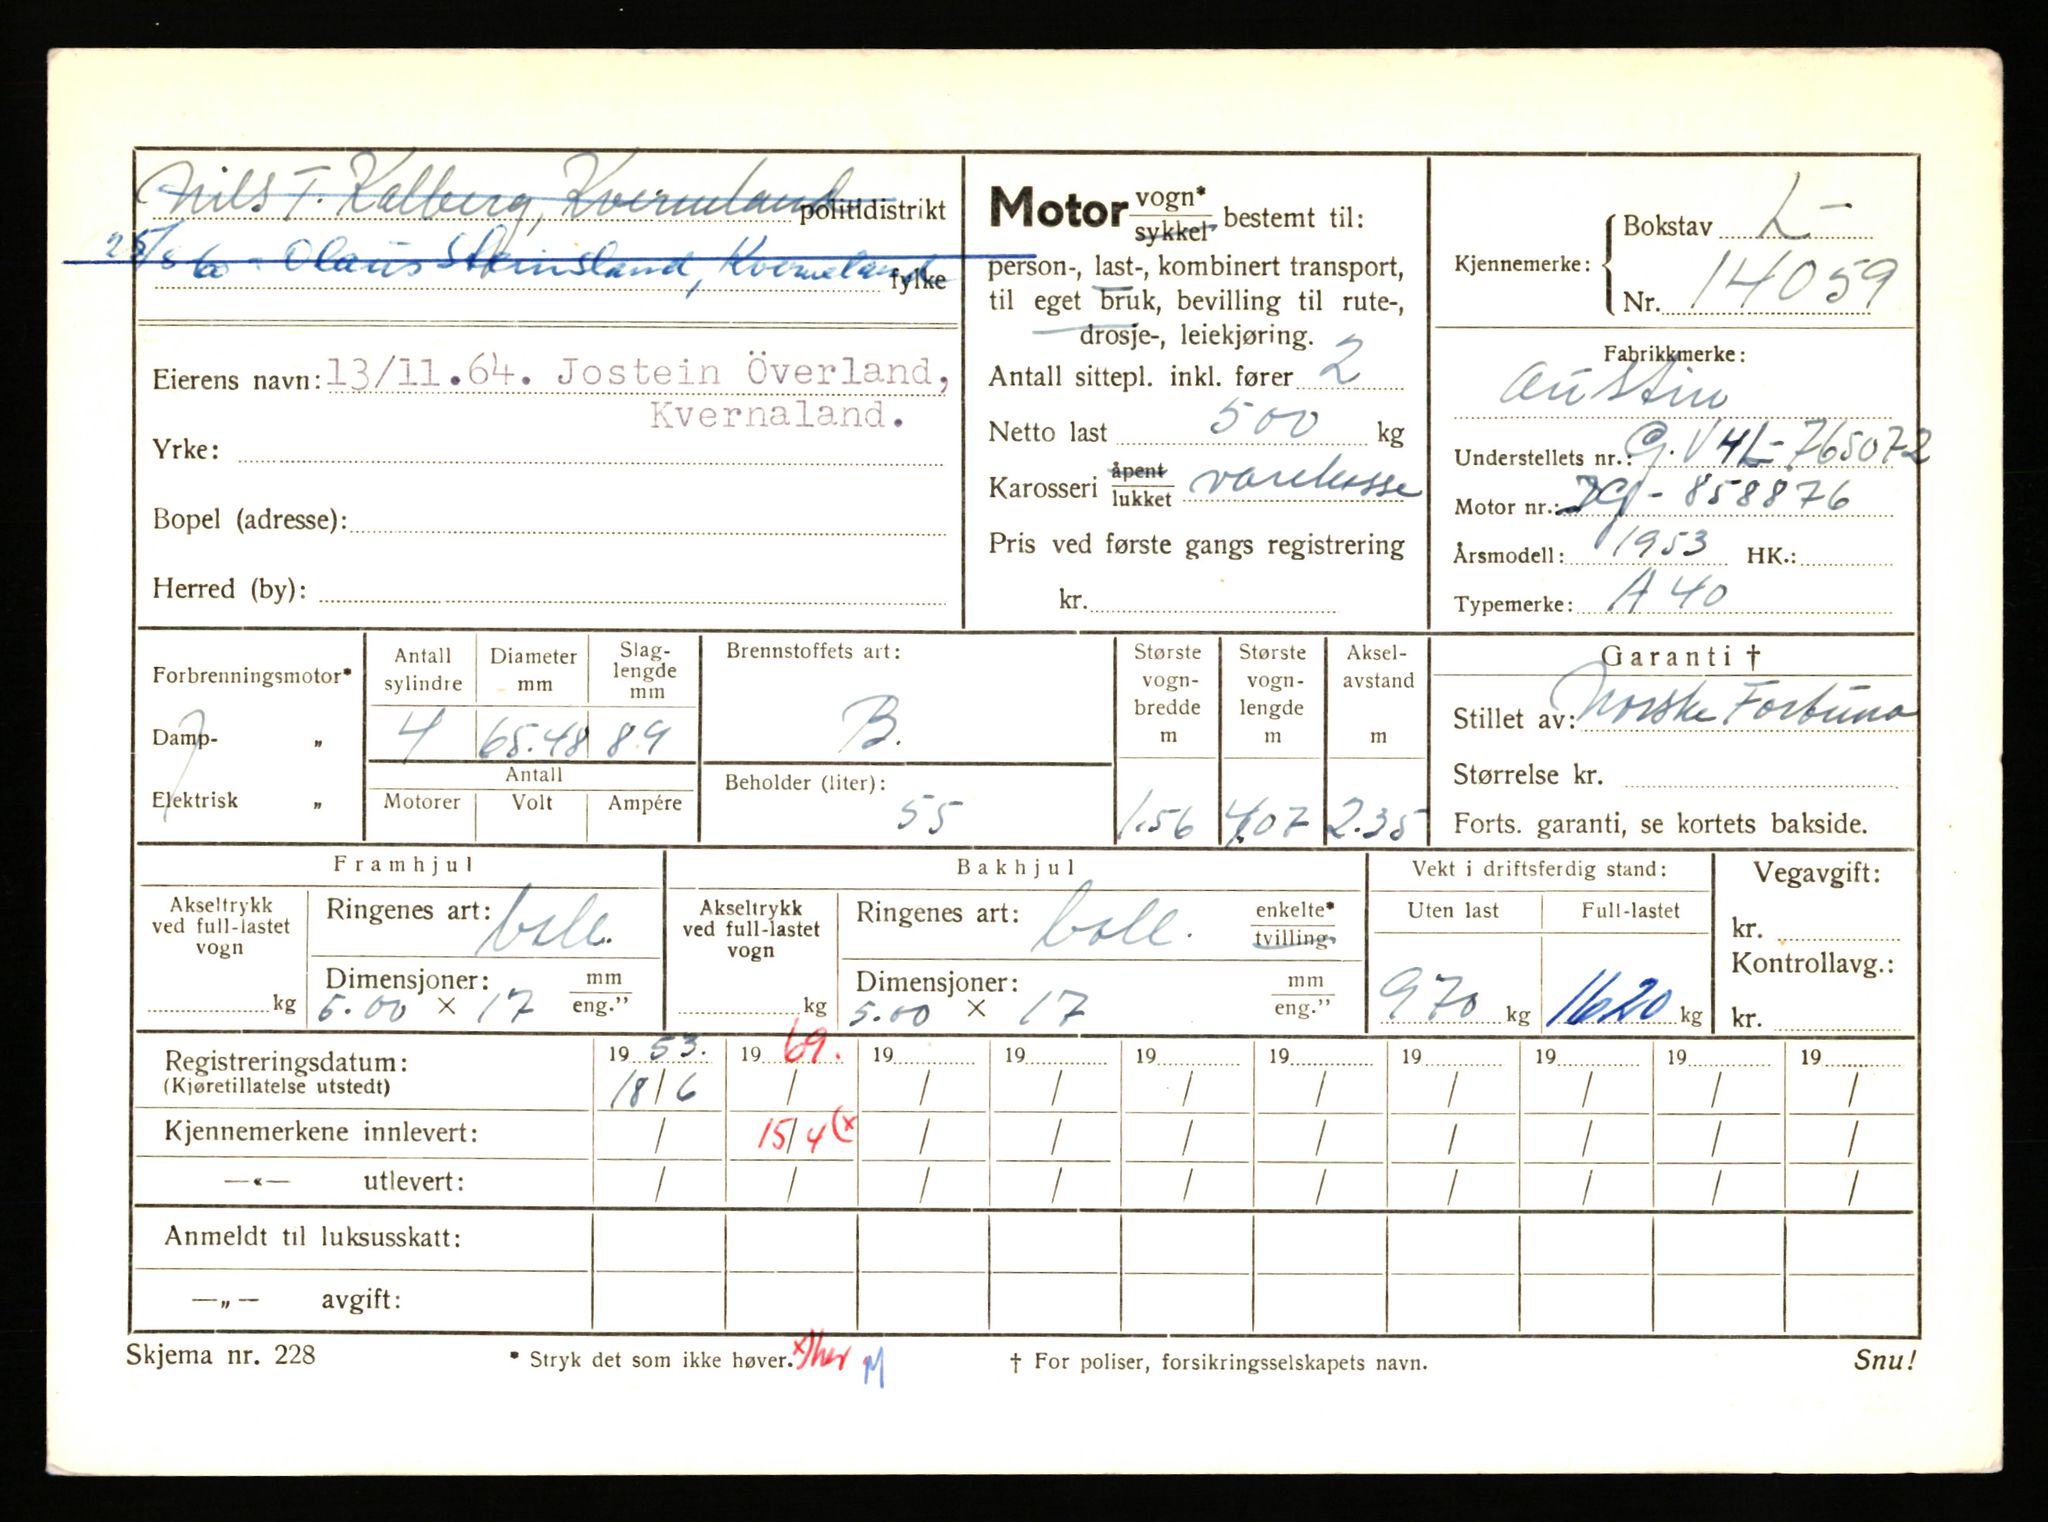 Nils T. Kalberg, Kvernaland politidistrikt
25/8 60 - Olaus Steinsland, Kvernaland fylke
Eierens navn: 13/11.64. Jostein Överland,
Kvernaland.
Yrke:
Bopel (adresse):
Herred (by):
Motor vogn* sykkel bestemt til:
person-, last-, kombinert transport,
til eget bruk, bevilling til rute-,
drosje-, leiekjøring.
Antall sittepl. inkl. fører 2
Netto last 500 kg
Karosseri åpent lukket varekasse
Pris ved første gangs registrering
kr.
Kjennemerke:
Bokstav L-
Nr. 14059
Fabrikkmerke:
Austin
Understellets nr.: G.V4L-765072
Motor nr.: - 858876
Årsmodell: 1953 HK.:
Typemerke: A 40
Forbrenningsmotor*
Damp- „
Elektrisk „
Antall sylindre Diameter mm Slag-lengde mm
4 65.48 89
Antall
Motorer Volt Ampére
Brennstoffets art:
B.
Beholder (liter):
55
Største vogn-bredde m Største vogn-lengde m Aksel-avstand m
1.56 4.07 2.35
Garanti †
Stillet av: Norske Fortuna
Størrelse kr.
Forts. garanti, se kortets bakside.
Framhjul
Akseltrykk ved full-lastet vogn
kg
Ringenes art: ball.
Dimensjoner: mm eng.”
5.00 × 17
Bakhjul
Akseltrykk ved full-lastet vogn
kg
Ringenes art: ball. enkelte* tvilling
Dimensjoner: mm eng.”
5.00 × 17
Vekt i driftsferdig stand:
Uten last Full-lastet
970 kg 1620 kg
Vegavgift:
kr.
Kontrollavg.:
kr.
Registreringsdatum: 19 53. 19 69. 19 19 19 19 19 19 19 19
(Kjøretillatelse utstedt) 18/6 / / / / / / / / /
Kjennemerkene innlevert: / 15/4 (x / / / / / / / /
—«— utlevert: / / / / / / / / / /
Anmeldt til luksusskatt:
—„— avgift:
Skjema nr. 228 * Stryk det som ikke høver. † For poliser, forsikringsselskapets navn. Snu!